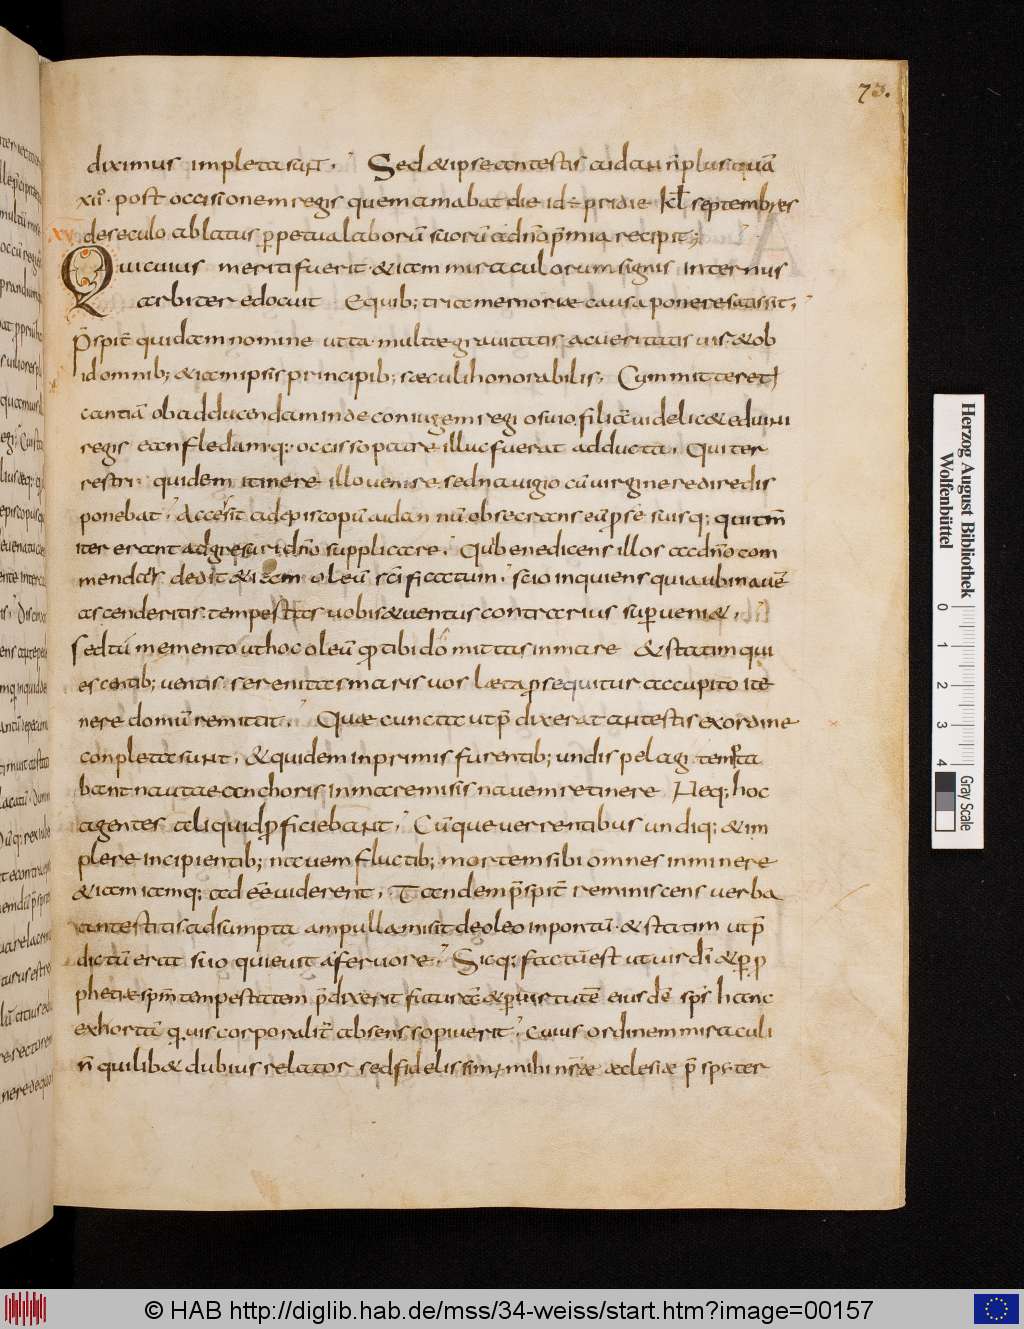 73.
diximus impleta sunt. Sed & ipse antestis aidan n̄ plus quā
xiiº. post occisionem regis quem amabat die id ÷ pridie kł septembres
xv de seculo ablatus ꝑpetua laborū suorū adnō p̄mia recipit;
Qui cuius meriti fuerit & iam miraculorum signis internus
arbiter edocuit E quib; tria memoriae causa ponere satis sit;
p̄spit̄ quidam nomine utta multae grauitatis ac ueritatis uir & ob
id omnib; & iam ipsis principib; saeculi honorabilis. Cum mitteret
cantiā ob adducendam inde coniugem regi osuio. filiā uidelic& eduini
regis eanfledam q; occiso patre illuc fuerat adducta. Qui ter
restri quidem itinere illo uenire sed nauigio cū uirgine redire dis
ponebat. Accesit ad episcopū aidanum obsecrans eū p se suisq; qui tm̄
iter erant adgresuri dnō supplicare. Qui benedicens illos ac dnō com
mendans dedit & iam oleū scī ficatum. scio inquiens quia ubi nauē
ascenderitis. tempestas uobis & uentus contrarius superueni&.
sed tū memento ut hoc oleū qđ tibi do mittas in mare & statim qui
escentib; uentis. serenitas maris uos laeta ꝓsequitur ac cupito ite
nere domū remittit. Quae cuncta ut p̄dixerat antestis ex ordine
conpleta sunt. & quidem inprimis furentib; undis pelagi. temta
bant nautae anchoris in mare misis nauem retinere Neq; hoc
agentes aliquid ꝓficiebant. Cūque uerrentibus undiq; & im
plere incipientib; nauem fluctib; mortem sibi omnes inminere
& iam iamq; adeē uiderent. Tandem p̄spit̄ reminiscens uerba
antestitis. adsumpta ampulla misit de oleo in pontū. & statim ut p̄
dictū erat suo quieuit a feruore. Sicq; factū est ut uir dī & ꝑ ꝓ
phetiae spm̄ tempestatem p̄dixerit futurā & ꝑ uirtutē eiusdē sps̄ hanc
exhortā quis corporalit̄ absens sopiuerit. Cuius ordinem miraculi
n̄ quilib& dubius relator sed fidelissim; mihi nr̄ae aeclesiae p̄sp̄ter
Herzog August Bibliothek
Wolfenbüttel
0 1 2 3 4
Gray Scale
© HAB http://diglib.hab.de/mss/34-weiss/start.htm?image=00157